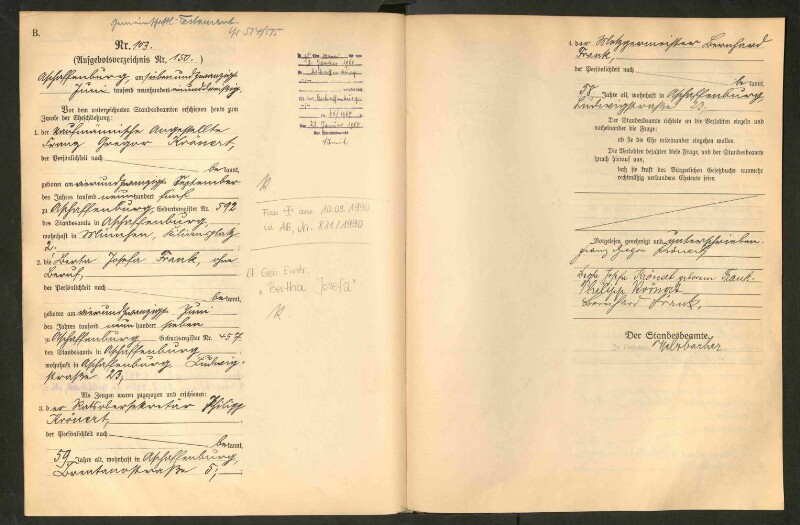 Gemeinschaftl. Testament
B.
Nr. 103.
(Aufgebotsverzeichnis Nr. 150.)
Aschaffenburg, am siebenundzwanzigsten
Juni tausend neunhundert
Vor dem unterzeichneten Standesbeamten erschienen heute zum
Zwecke der Eheschließung:
1. der kaufmännische Angestellte
Franz Gregor Krönert,
der Persönlichkeit nach
bekannt,
geboren am vierundzwanzigsten September
des Jahres tausend neunhundert fünf
zu Aschaffenburg, Geburtsregister Nr. 592
des Standesamts in Aschaffenburg,
wohnhaft in München, Kiliansplatz
2.
2. die Berta Josefa Frank, ohne
Beruf,
der Persönlichkeit nach
bekannt,
geboren am vierundzwanzigsten Juni
des Jahres tausend neunhundert sieben
zu Aschaffenburg, Geburtsregister Nr. 457
des Standesamts in Aschaffenburg,
wohnhaft in Aschaffenburg, Ludwig-
straße 23,
Als Zeugen waren zugezogen und erschienen:
3. der Ratsobersekretär Philipp
Krönert,
der Persönlichkeit nach
bekannt,
59 Jahre alt, wohnhaft in Aschaffenburg,
Brentanostraße 5,
Januar
Aschaffenburg
Januar
Der Standesbeamte
Frau I† am 10.09.1990
in AB, Nr. 831/1990
Geb. Eintr.
"Bertha Josefa"
4. der Metzgermeister Bernhard
Frank,
der Persönlichkeit nach
bekannt,
58 Jahre alt, wohnhaft in Aschaffenburg,
Ludwigstraße 23.
Der Standesbeamte richtete an die Verlobten einzeln und
nacheinander die Frage:
ob sie die Ehe miteinander eingehen wollen.
Die Verlobten bejahten diese Frage, und der Standesbeamte
sprach hierauf aus,
daß sie kraft des Bürgerlichen Gesetzbuchs nunmehr
rechtmäßig verbundene Eheleute seien.
Vorgelesen, genehmigt und unterschrieben
Franz Gregor Krönert
Berta Josefa Krönert geborene Frank.
Philipp Krönert
Bernhard Frank.
Der Standesbeamte.